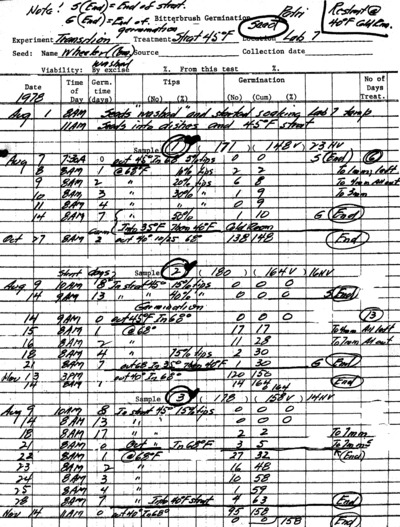 Note! S (End) = End of strat.
G (End) = End of germination
Bitterbrush Germination Petri
Seed
Restrat @ 40°F Cold Rm.
Experiment Transition Treatment Strat 45°F Location Lab 7
Seed: Name Wheeler Source Collection date
Viability: By excise washed %. From this test %.
Date Time of Day Germ. time (days) Tips (No) (%) Germination (No) (Cum) (%) No of Days Treat.
1978
Aug 1 8AM Seeds "washed" and started soaking Lab 7 temp
11AM Seeds into dishes and 45°F strat
Sample 1 ( 171 ( 148V ) 23NV
Aug 7 7:30A 0 out 45° In 68° 5% tips 0 0 S (End) 6
8 8AM 1 @ 68°F 10% tips 2 2
9 8AM 2 " 20% tips 6 8
10 8AM 3 " 30% " 1 9
11 8AM 4 " " 0 9
14 8AM 7 " 50% 1 10 G (End)
Into 35°F Then 40°F Cold Room
Oct 27 8AM 2 out 40° 10/25 68° 138 148 (End)
Strat days Sample 2 ( 180 ( 164V ) 16NV
Aug 9 10AM 8 In strat 45° 15% tips 0 0 0
14 9AM 13 " " 40% " 0 0 0 S End
Germination
14 9AM 0 out 45°F In 68° 0 0 0 13
15 8AM 1 @ 68° 17 17
16 8AM 2 " 11 28
18 8AM 4 " 75% tips 2 30
21 8AM 7 out 68 In 35° Then 40°F 0 30 G End
Nov 13 3PM out 40° In 68° 120 150
14 8AM 1 14 164 (End)
164
Sample 3 ( 178 ( 158V ) 14NV
Aug 9 10AM 8 In strat 45° 15% tips 0 0 0
14 8AM 13 " 0 0 0
18 8AM 17 " 2 2 To 1mm
21 8AM 0 Out " In 68°F 3 5 To 2mm S
22 8AM 1 @ 68°F 27 32 (End)
23 " 2 " 16 48
24 8AM 3 " 10 58
25 8AM 4 " 1 59
28 8AM 7 " Into 40°F strat 4 63 (End)
Nov 14 8AM 0 out 40° In 68° 95 158
0 0 158 (End)